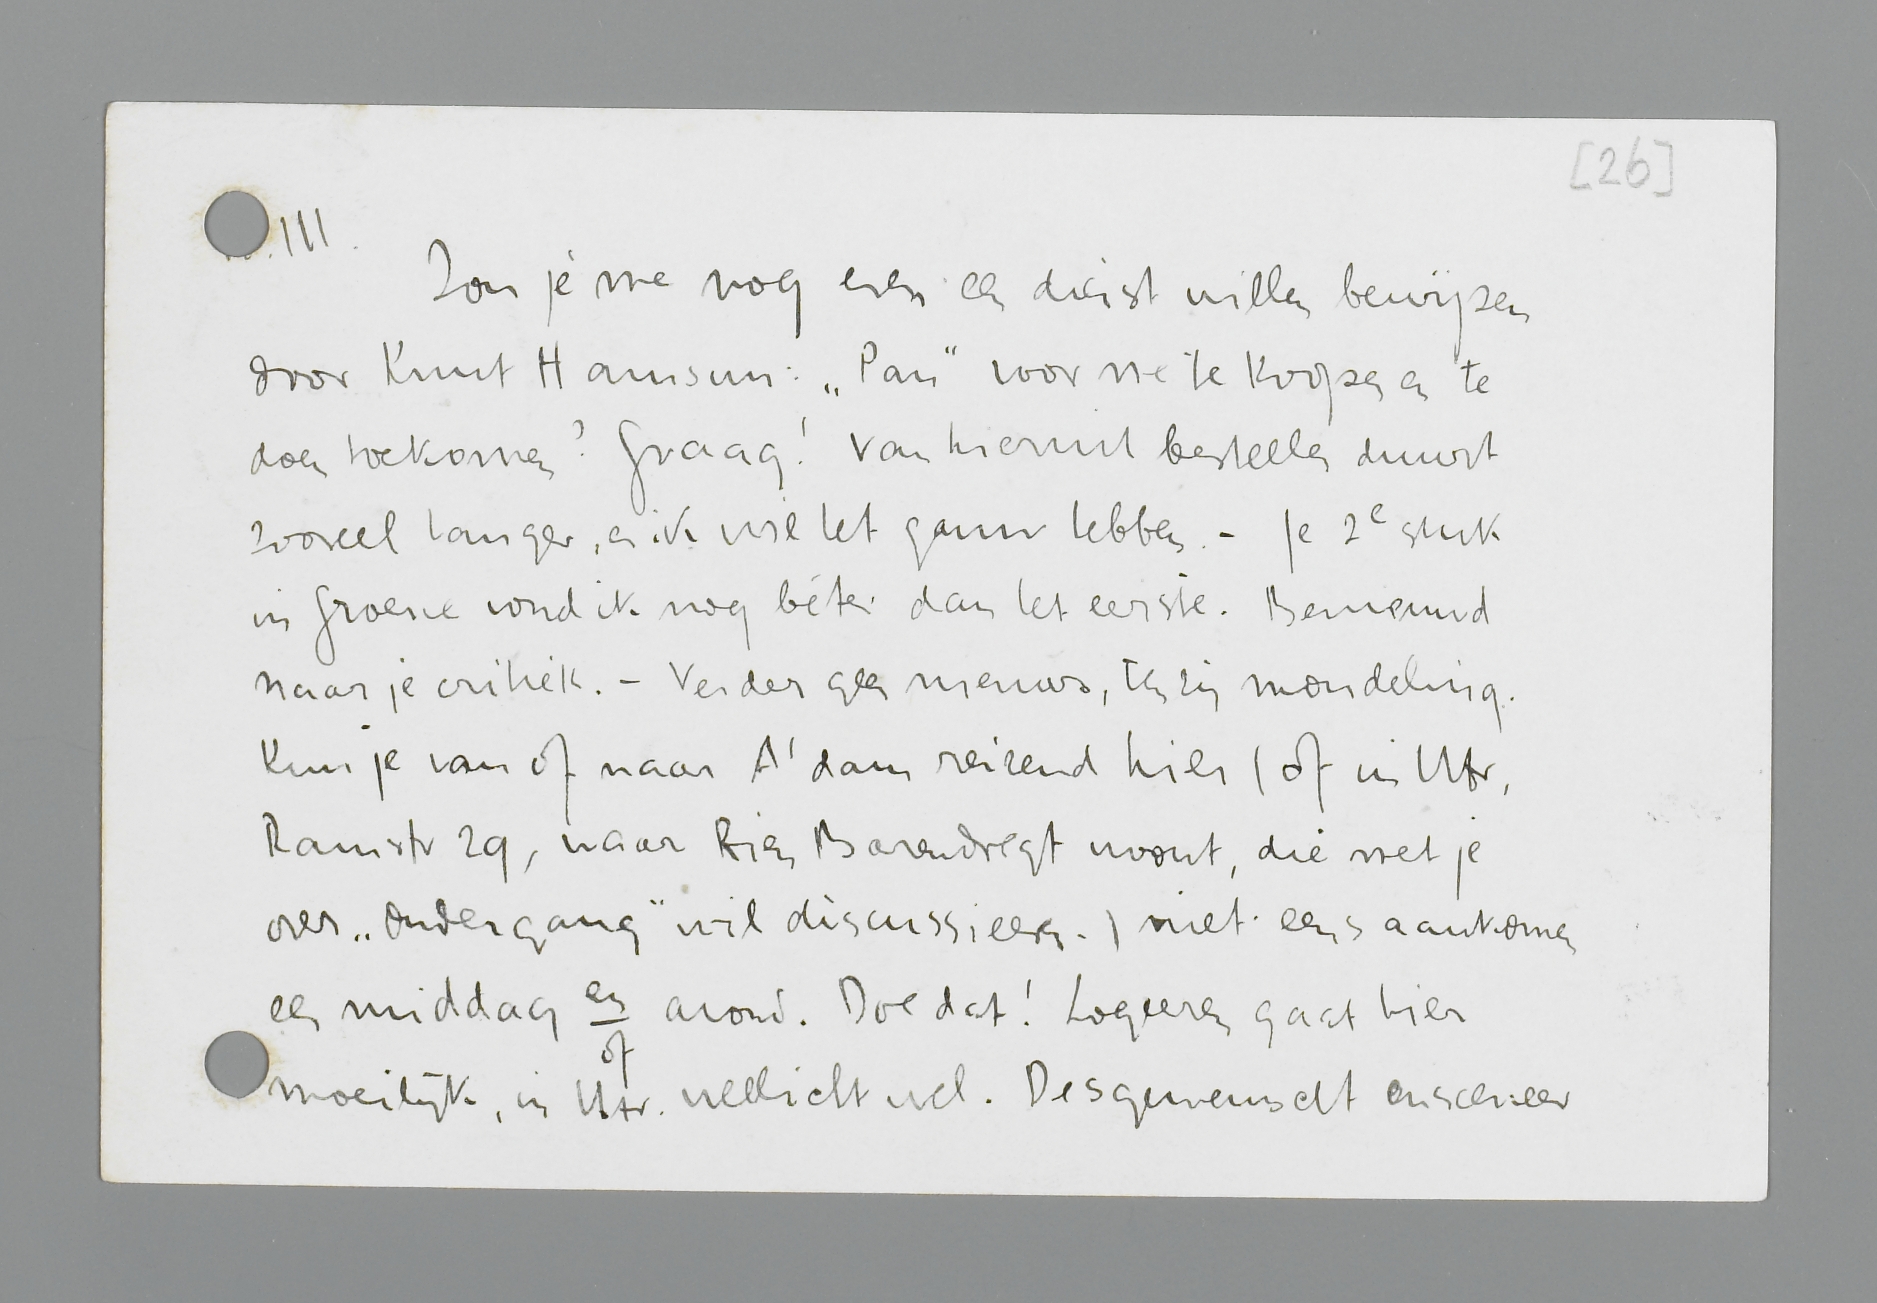 [26]
III.
Zou je me nog even een dienst willen bewijzen
door Knut Hamsun: „Pan” voor me te koopen en te
doen toekomen? Graag! Van hieruit bestellen duurt
zooveel langer, en ik wil het gauw hebben. – Je 2e stuk
in Groene vond ik nog béter dan het eerste. Benieuwd
naar je critiek. – Verder geen nieuws, tenzij mondeling.
Kun je van of naar A'dam reizend hier (of in Utr,
Ramstr 29, waar Rien Barendregt woont, die met je
over „Ondergang” wil discussieeren.) niet eens aankomen
een middag en avond. Doe dat! Logeeren gaat hier
of
moeilijk, in Utr. wellicht wel. Desgewenscht ensceneer